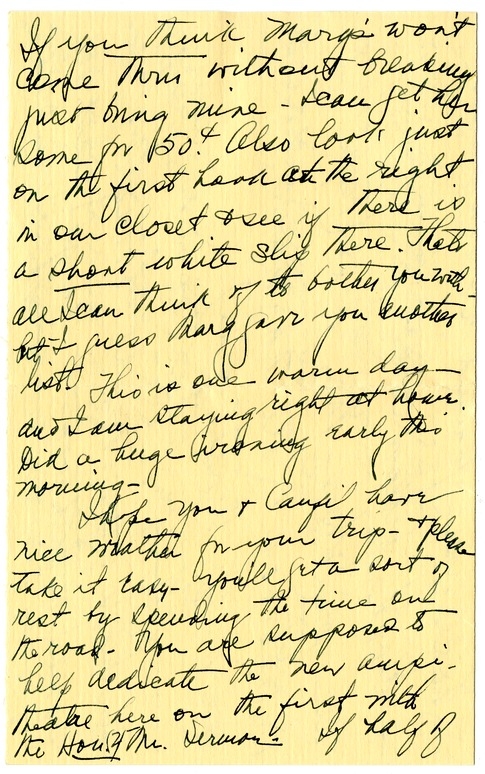 If you think Marg's won't
come thru without breaking
just bring mine - I can get her
some for 50¢. Also look just
on the first hook at the right
in our closet & see if there is
a short white slip there. That's
all I can think of to bother you with -
but I guess Marg gave you another
list. This is one warm day -
and I am staying right at home.
Did a huge ironing early this
morning -
I hope you & have
nice weather for your trip - & please
take it easy - You'll get a sort of
rest by spending the time on
the road - You are supposed to
help dedicate the new ampi-
theatre here on the first with
the Hon. Mr. Sermon - If half of